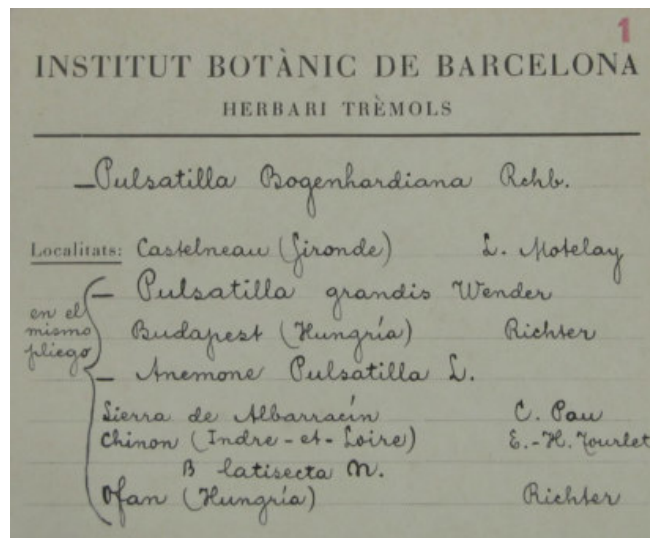 1
INSTITUT BOTÀNIC DE BARCELONA
HERBARI TRÈMOLS
—Pulsatilla Bogenhardiana Rchb.
Localitats: Castelneau (Gironde) L. Motelay
en el mismo pliego
— Pulsatilla grandis Wender
Budapest (Hungría) Richter
— Anemone Pulsatilla L.
Sierra de Albarracín C. Pau
Chinon (Indre-et-Loire) E.-H. Tourlet
B latisecta N.
Ofan (Hungría) Richter